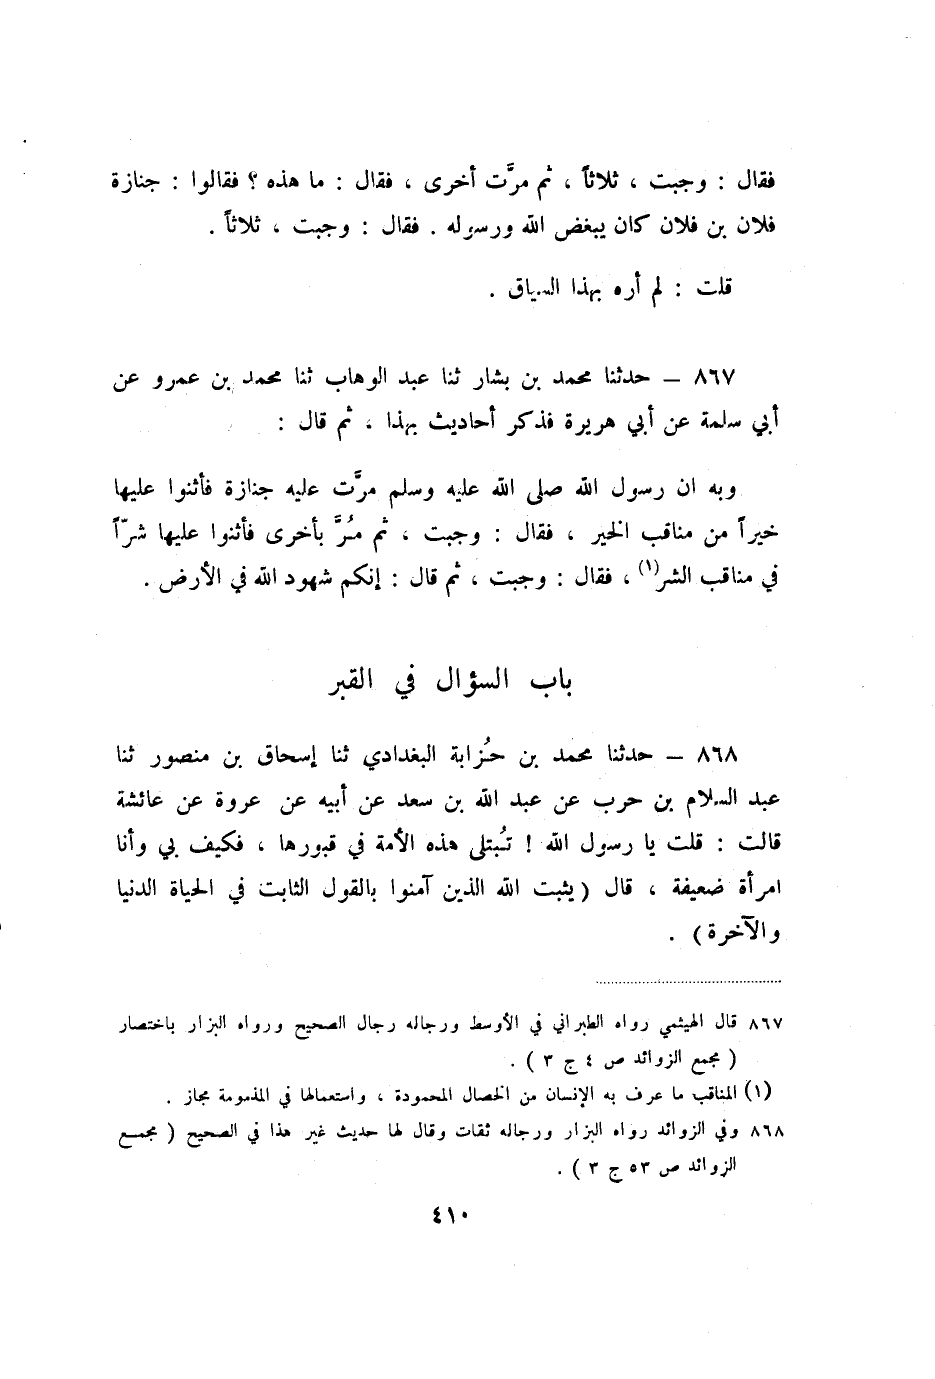 فقال : وجبت ، ثلاثاً ، ثم مرَّت أخرى ، فقال : ما هذه ؟ فقالوا : جنازة
فلان بن فلان كان يبغض الله ورسوله . فقال : وجبت ، ثلاثاً .
قلت : لم أره بهذا السياق .
٨٦٧ – حدثنا محمد بن بشار ثنا عبد الوهاب ثنا محمد بن عمرو عن
أبي سلمة عن أبي هريرة فذكر أحاديث بهذا ، ثم قال :
وبه ان رسول الله صلى الله عليه وسلم مرَّت عليه جنازة فأثنوا عليها
خيراً من مناقب الخير ، فقال : وجبت ، ثم مُرَّ بأخرى فأثنوا عليها شرّاً
في مناقب الشر(١) ، فقال : وجبت ، ثم قال : إنكم شهود الله في الأرض .
باب السؤال في القبر
٨٦٨ – حدثنا محمد بن حُزابة البغدادي ثنا إسحاق بن منصور ثنا
عبد السلام بن حرب عن عبد الله بن سعد عن أبيه عن عروة عن عائشة
قالت : قلت يا رسول الله ! تُبتلى هذه الأمة في قبورها ، فكيف بي وأنا
امرأة ضعيفة ، قال ( يثبت الله الذين آمنوا بالقول الثابت في الحياة الدنيا
والآخرة ) .
٨٦٧ قال الهيثمي رواه الطبراني في الأوسط ورجاله رجال الصحيح ورواه البزار باختصار
( مجمع الزوائد ص ٤ ج ٣ ) .
(١) المناقب ما عرف به الإنسان من الخصال المحمودة ، واستعمالها في المذمومة مجاز .
٨٦٨ وفي الزوائد رواه البزار ورجاله ثقات وقال لها حديث غير هذا في الصحيح ( مجمع
الزوائد ص ٥٣ ج ٣ ) .
٤١٠